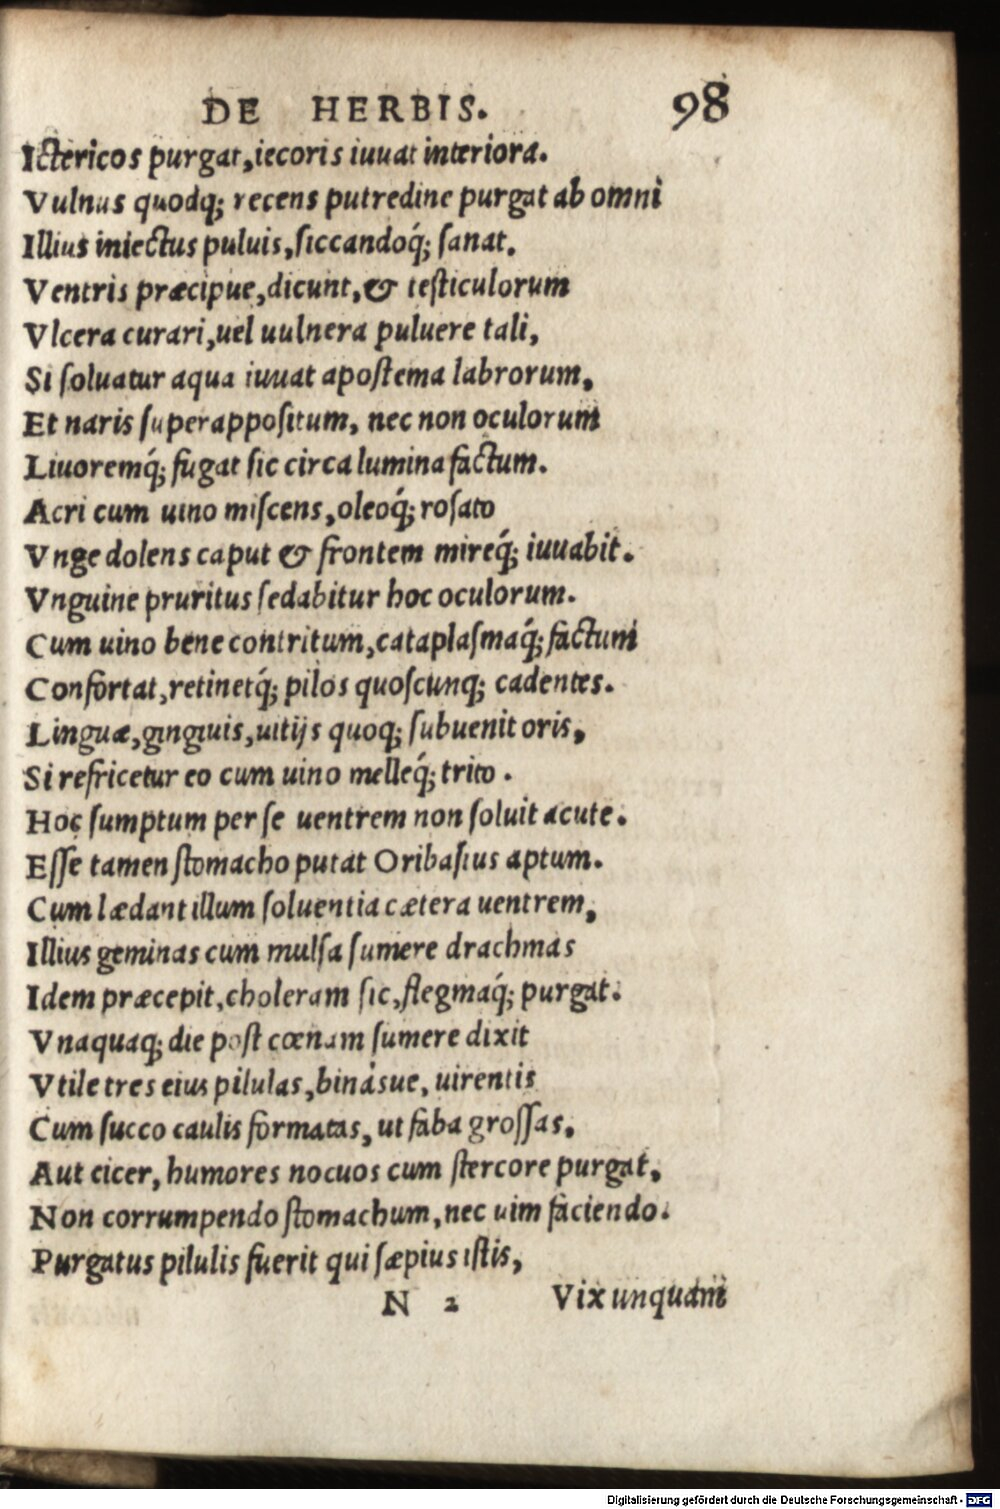 DE HERBIS. 98
Ictericos purgat, iecoris iuuat interiora.
Vulnus quodq; recens putredine purgat ab omni
Illius iniectus puluis, ſiccandoq́; ſanat.
Ventris præcipue, dicunt, & teſticulorum
Vlcera curari, uel uulnera puluere tali,
Si ſoluatur aqua iuuat apoſtema labrorum,
Et naris ſuperappoſitum, nec non oculorum
Liuoremq́; fugat ſic circa lumina factum.
Acri cum uino miſcens, oleoq́; roſato
Vnge dolens caput & frontem mireq́; iuuabit.
Vnguine pruritus ſedabitur hoc oculorum.
Cum uino bene contritum, cataplaſmaq́; factum
Confortat, retinetq́; pilos quoſcunq; cadentes.
Linguæ, gingiuis, uitijs quoq; ſubuenit oris,
Si refricetur eo cum uino melleq́; trito.
Hoc ſumptum per ſe uentrem non ſoluit acute.
Eſſe tamen ſtomacho putat Oribaſius aptum.
Cum lædant illum ſoluentia cætera uentrem,
Illius geminas cum mulſa ſumere drachmas
Idem præcepit, choleram ſic, flegmaq́; purgat.
Vnaquaq; die post cœnam ſumere dixit
Vtile tres eius pilulas, binásue, uirentis
Cum ſucco caulis formatas, ut faba groſſas,
Aut cicer, humores nocuos cum ſtercore purgat,
Non corrumpendo ſtomachum, nec uim faciendo.
Purgatus pilulis fuerit qui ſæpius iſtis,
N 2 Vix unquam
Digitalisierung gefördert durch die Deutsche Forschungsgemeinschaft - DFG